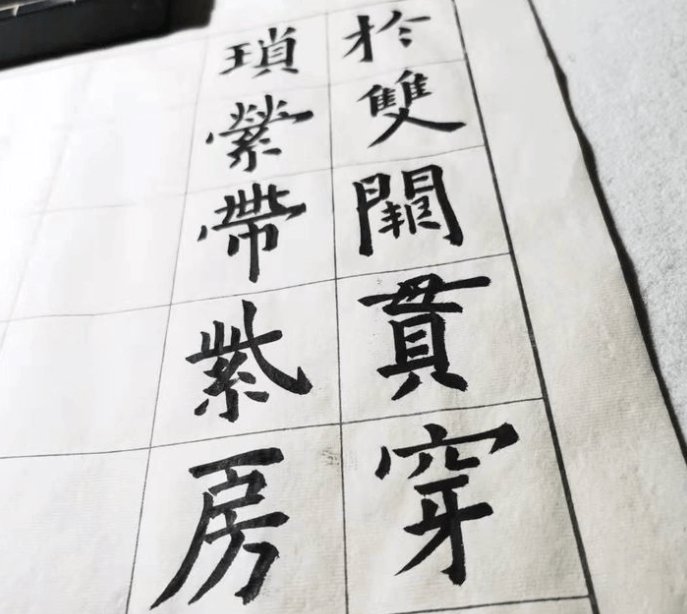 於雙闕貫穿
瑣縈帶紫房